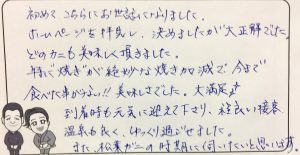 初めてこちらにお世話になりました。
ホームページを拝見し、決めましたが大正解でした。
どのカニも美味しく頂きました。
特に"焼き"が絶妙な焼き加減で今まで
食べた事がない!!美味しさでした。大満足
到着時も元気に迎えて下さり、程良い接客
温泉も良く、ゆっくり過ごせました。
また、松葉ガニの時期に伺いたいと思います。